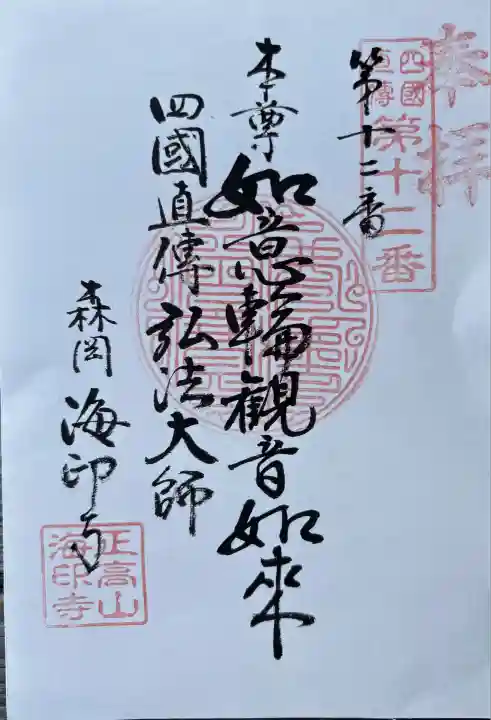 奉拝
四國
直傳
第十二番
第十二番
本尊
如意輪観音如來
四國直傳弘法大師
森岡
海印寺
正高山
海印寺